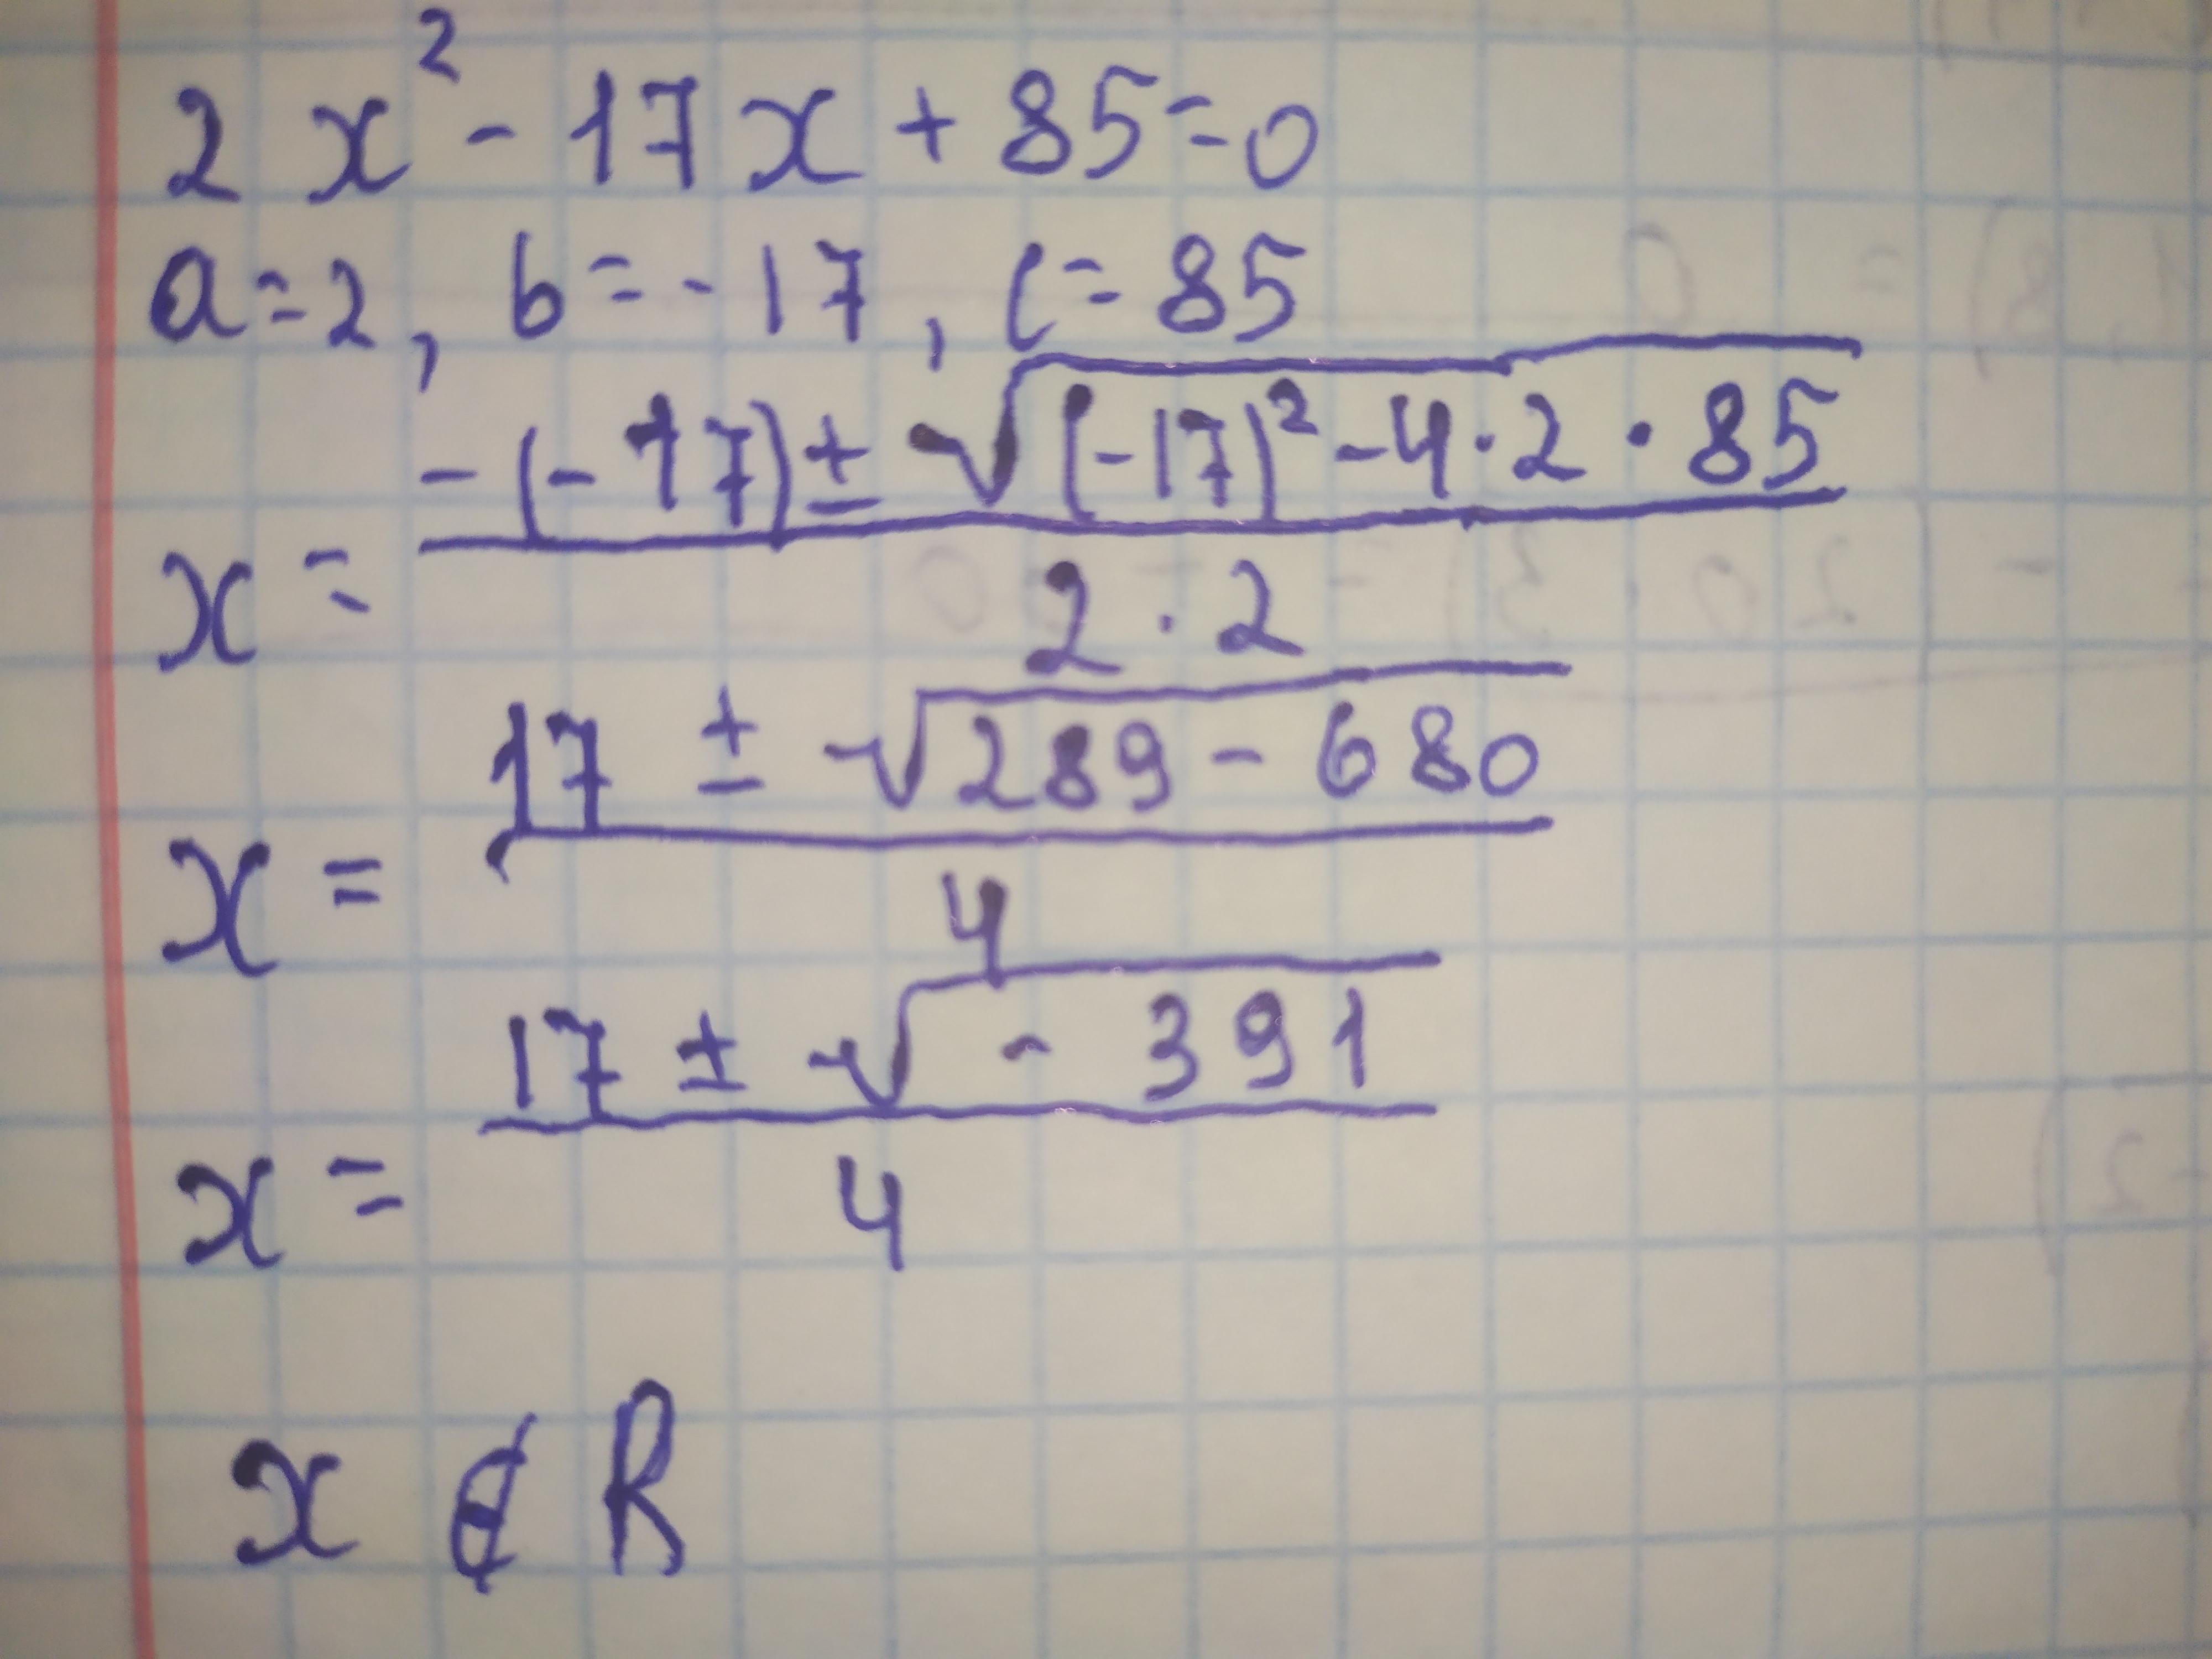 2x² - 17x + 85 = 0
a = 2, b = -17, c = 85
x = (-(-17) ± √((-17)² - 4·2·85)) / (2·2)
x = (17 ± √(289 - 680)) / 4
x = (17 ± √(-391)) / 4
x ∉ R